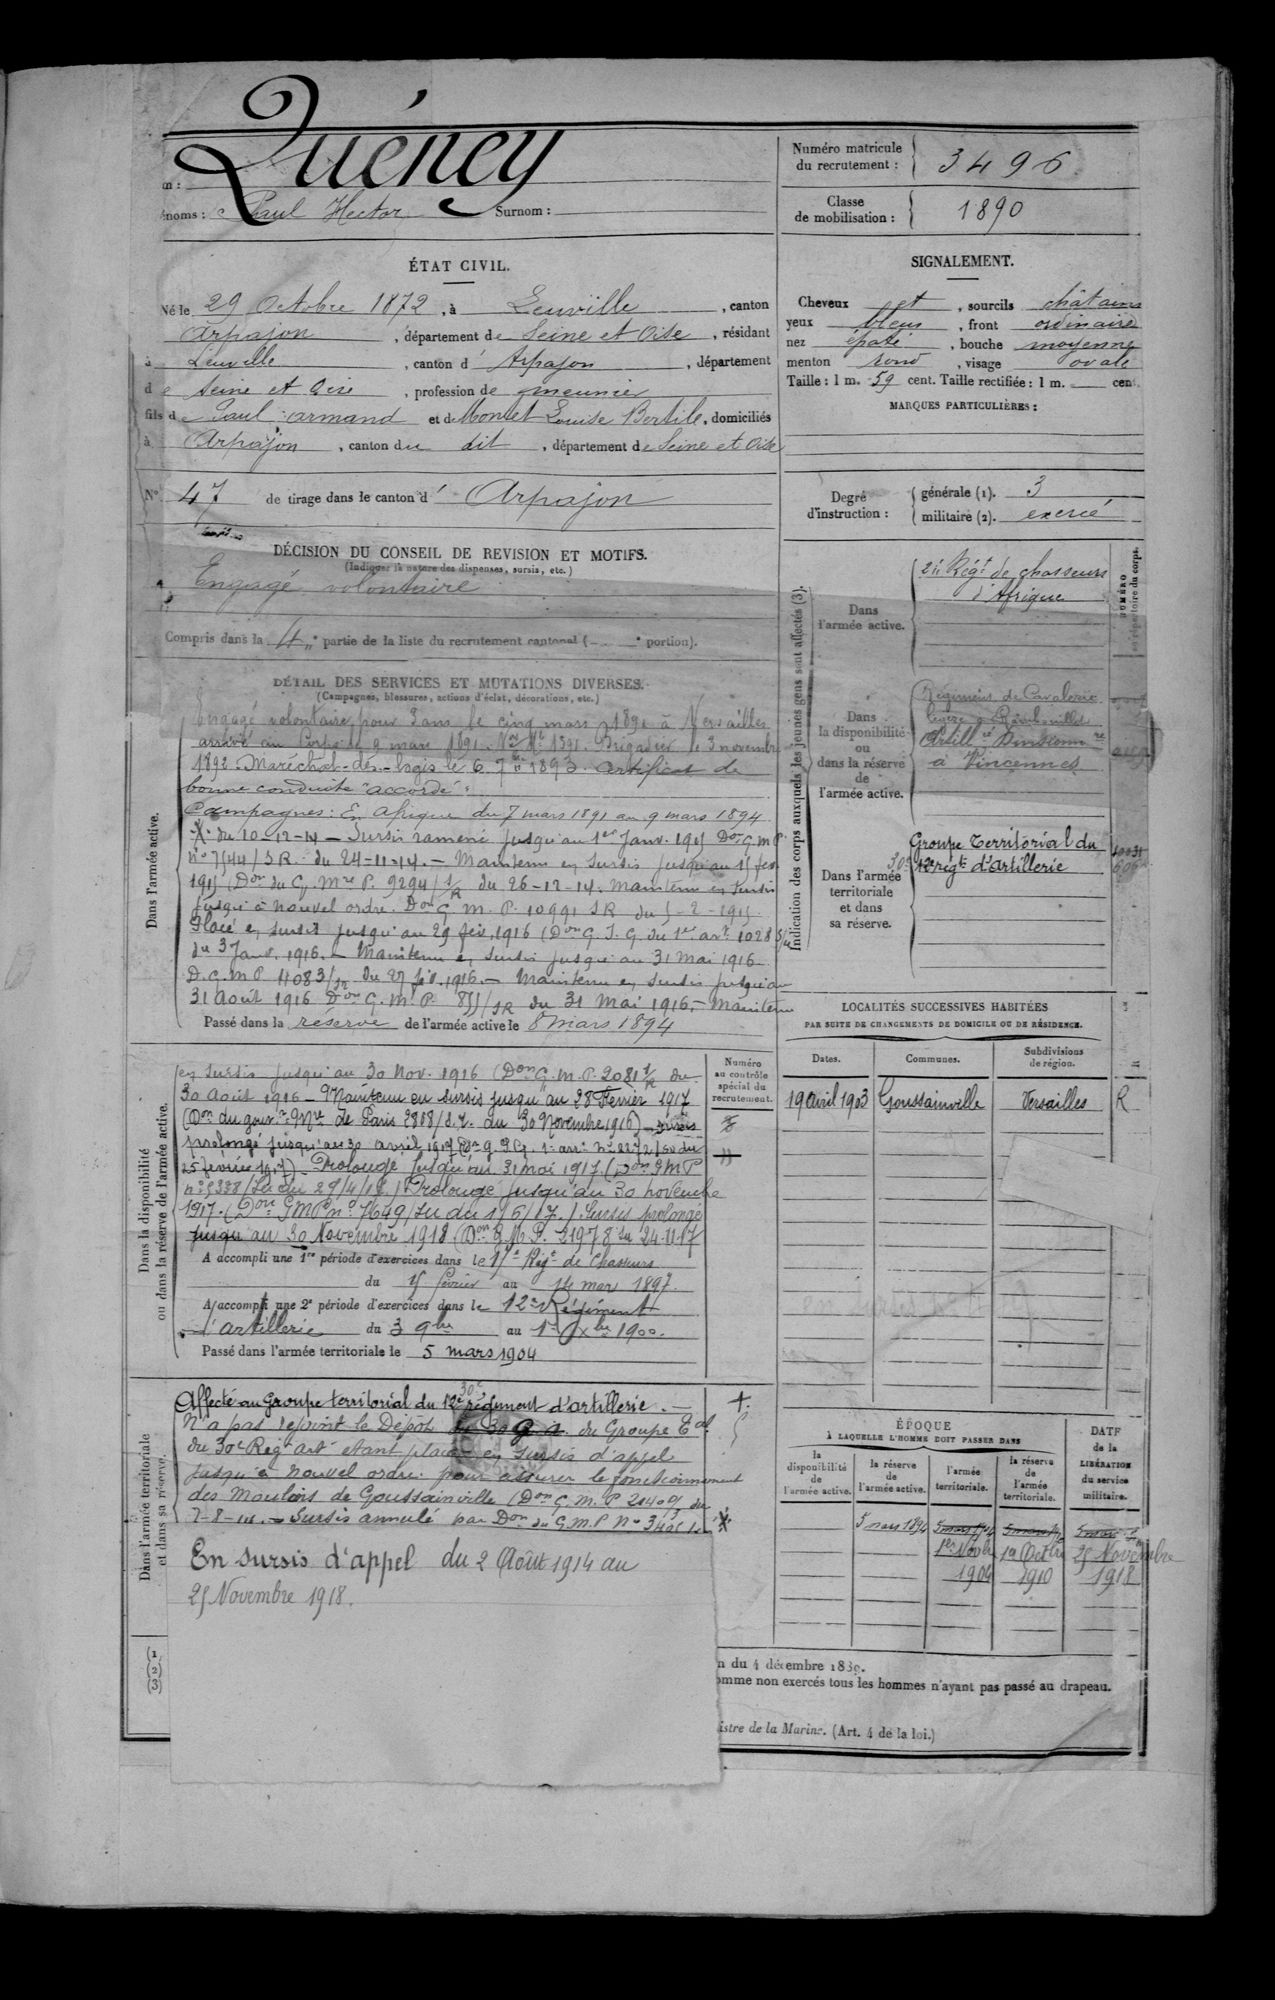 Quéney
m :
énoms : Paul Hector Surnom :
Numéro matricule
du recrutement : 3496
Classe
de mobilisation : 1890
ÉTAT CIVIL.
Né le 29 Octobre 1872, à Leuville, canton
Arpajon, département de Seine et Oise, résidant
à Leuville, canton d' Arpajon, département
de Seine et Oise, profession de meunier
fils de Paul armand et de Montet Louise Bertile, domiciliés
à Arpajon, canton du dit, département de Seine et Oise
N° 47 de tirage dans le canton d' Arpajon
SIGNALEMENT.
Cheveux et, sourcils châtains
yeux bleus, front ordinaire
nez épaté, bouche moyenne
menton rond, visage ovale
Taille : 1 m. 59 cent. Taille rectifiée : 1 m. cent.
MARQUES PARTICULIÈRES :
Degré
d'instruction :
générale (1). 3
militaire (2). exercé
DÉCISION DU CONSEIL DE REVISION ET MOTIFS.
(Indiquer la nature des dispenses, sursis, etc.)
Engagé volontaire
Compris dans la 4e partie de la liste du recrutement cantonal ( portion).
DÉTAIL DES SERVICES ET MUTATIONS DIVERSES.
(Campagnes, blessures, actions d'éclat, décorations, etc.)
Dans l'armée active.
Engagé volontaire pour 3 ans le cinq mars 1891 à Versailles
arrivé au Corps le 9 mars 1891. Nº Mle 1391. Brigadier le 3 novembre
1892. Maréchal-des-logis le 6 7bre 1893. Certificat de
bonne conduite "accordé"
Campagnes : En Afrique du 7 mars 1891 au 9 mars 1894
du 10-12-14 — Sursis ramené jusqu'au 1er Janv. 1915 Don G.M.P.
nº 7544/SR. du 24-11-14. — Maintenu en sursis jusqu'au 15 fév.
1915 (Don du G. Mre P. 9294 S/R du 26-12-14. Maintenu en sursis
jusqu'à nouvel ordre. Don G. M. P. 10991 SR du 5-2-1915.
Placé en sursis jusqu'au 29 fév. 1916 (Don G. I. G. du 1er art 1028 S/u
du 3 Janv. 1916. — Maintenu en sursis jusqu'au 31 Mai 1916
D. G. M. P. 11083/SR du 27 fév. 1916. — Maintenu en sursis jusqu'au
31 Août 1916 Don G. M. P. 855/SR du 31 Mai 1916. — Maintenu
Passé dans la réserve de l'armée active le 8 mars 1894
Indication des corps auxquels les jeunes gens sont affectés (3).
NUMÉRO
au répertoire du corps.
Dans
l'armée active.
2e Régt de chasseurs
d'Afrique
Dans
la disponibilité
ou
dans la réserve
de
l'armée active.
Régiment de Cavalerie
légère à Rambouillet
Artillie Divisionnre
à Vincennes
Dans l'armée
territoriale
et dans
sa réserve.
Groupe Territorial du
30e 12e régt d'artillerie
LOCALITÉS SUCCESSIVES HABITÉES
PAR SUITE DE CHANGEMENTS DE DOMICILE OU DE RÉSIDENCE.
Dates. Communes. Subdivisions
de région.
19 avril 1903 Goussainville Versailles R
Dans la disponibilité
ou dans la réserve de l'armée active.
Numéro
au contrôle
spécial du
recrutement.
en sursis jusqu'au 30 Nov. 1916 (Don G. M. P. 2081 S/R du
30 Août 1916 — Maintenu en sursis jusqu'au 28 Février 1917
(Don du gouvr Mre de Paris 2868/S.Z. du 30 Novembre 1916) — Sursis
prolongé jusqu'au 30 avril 1917 (Don G. I. G. 1er arrt nº 2272/SU du
25 février 1917) — Prolongé jusqu'au 31 mai 1917 (Don GMP
nº 5338/Su du 29/4/17.) Prolongé jusqu'au 30 novembre
1917. (Don GMP nº 7649/Su du 1/6/17.) Sursis prolongé
jusqu'au 30 Novembre 1918 (Don G. M. P. 21978 Su 24.11.17
A accompli une 1re période d'exercices dans le 15e Régt de Chasseurs
du 15 février au 14 mars 1897.
A accompli une 2e période d'exercices dans le 12e Régiment
d'artillerie du 3 9bre au 1er Xbre 1900.
Passé dans l'armée territoriale le 5 mars 1904
Dans l'armée territoriale
et dans sa réserve.
Affecté au Groupe territorial du 12e 30e régiment d'artillerie. —
N'a pas rejoint le Dépôt du Groupe Tal
du 30e Régt art étant placé en sursis d'appel
jusqu'à nouvel ordre pour assurer le fonctionnement
des Moulins de Goussainville (Don G. M. P. 21409 du
7-8-14. — Sursis annulé par Don du G.M.P. Nº
En sursis d'appel du 2 Août 1914 au
25 Novembre 1918.
ÉPOQUE
À LAQUELLE L'HOMME DOIT PASSER DANS
la
disponibilité
de
l'armée active.
la réserve
de
l'armée active.
l'armée
territoriale.
la réserve
de
l'armée
territoriale.
DATE
de la
LIBÉRATION
du service
militaire.
5 mars 1894 5 mars 1904
1er Novbre 1904 1er Octbre 1910 25 Novembre 1918
(1)
(2)
(3)
n du 4 décembre 1889.
omme non exercés tous les hommes n'ayant pas passé au drapeau.
istre de la Marine. (Art. 4 de la loi.)